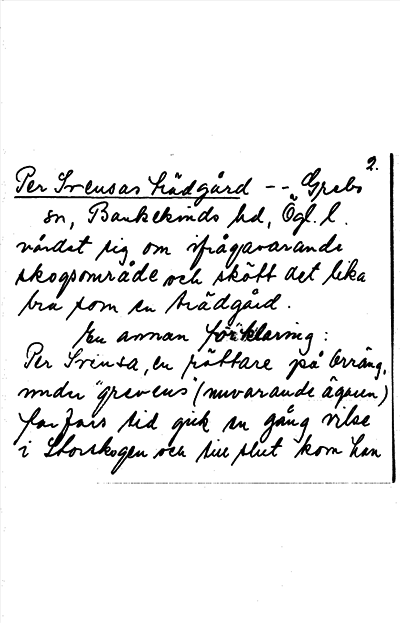 2.
Per Svensas trädgård -- Grebo
sn, Bankekinds hd, Ögl. l.
vårdat sig om ifrågavarande
skogsområde och skött det lika
bra som en trädgård.
En annan förklaring:
Per Svensa, en rättare på
under "grevens" (nuvarande ägaren)
farfars tid gick en gång vilse
i Storskogen och till slut kom han